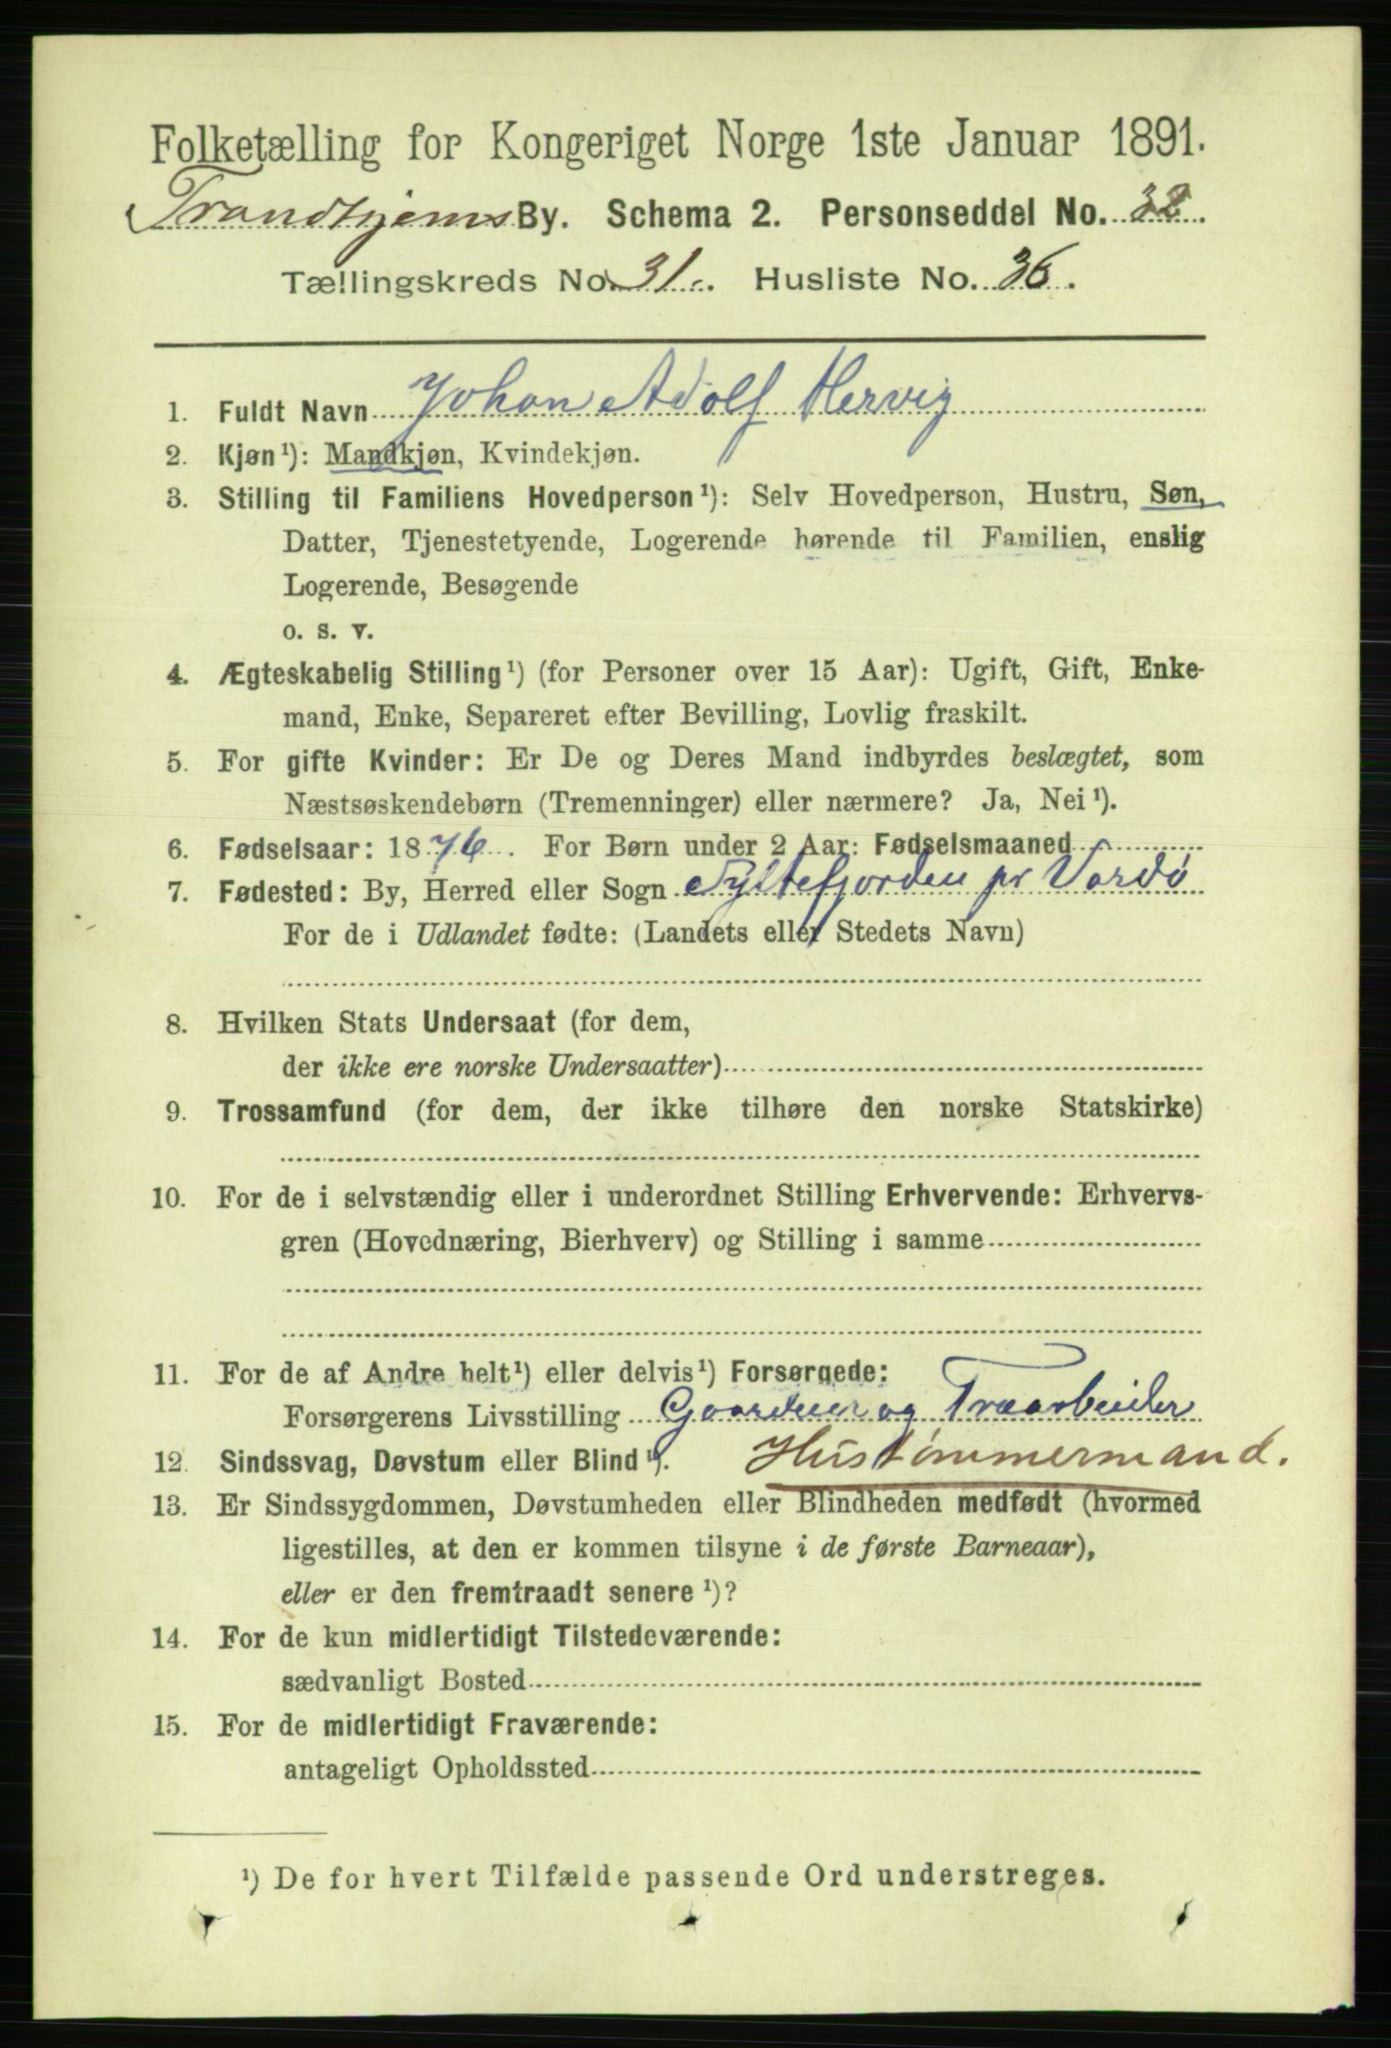 Folketælling for Kongeriget Norge 1ste Januar 1891.
Trondhjems By. Schema 2. Personseddel No. 32.
Tællingskreds No. 31. Husliste No. 36.
1. Fuldt Navn Johan Adolf Hervig
2. Kjøn¹): Mandkjøn, Kvindekjøn.
3. Stilling til Familiens Hovedperson¹): Selv Hovedperson, Hustru, Søn,
Datter, Tjenestetyende, Logerende hørende til Familien, enslig
Logerende, Besøgende
o. s. v.
4. Ægteskabelig Stilling¹) (for Personer over 15 Aar): Ugift, Gift, Enke-
mand, Enke, Separeret efter Bevilling, Lovlig fraskilt.
5. For gifte Kvinder: Er De og Deres Mand indbyrdes beslægtet, som
Næstsøskendebørn (Tremenninger) eller nærmere? Ja, Nei¹).
6. Fødselsaar: 1876. For Børn under 2 Aar: Fødselsmaaned
7. Fødested: By, Herred eller Sogn Syltefjorden pr Vardø
For de i Udlandet fødte: (Landets eller Stedets Navn)
8. Hvilken Stats Undersaat (for dem,
der ikke ere norske Undersaatter)
9. Trossamfund (for dem, der ikke tilhøre den norske Statskirke)
10. For de i selvstændig eller i underordnet Stilling Erhvervende: Erhvervs-
gren (Hovednæring, Bierhverv) og Stilling i samme
11. For de af Andre helt¹) eller delvis¹) Forsørgede:
Forsørgerens Livsstilling Gaardeier og Træarbeider
12. Sindssvag, Døvstum eller Blind¹). Hustømmermand.
13. Er Sindssygdommen, Døvstumheden eller Blindheden medfødt (hvormed
ligestilles, at den er kommen tilsyne i de første Barneaar),
eller er den fremtraadt senere¹)?
14. For de kun midlertidigt Tilstedeværende:
sædvanligt Bosted
15. For de midlertidigt Fraværende:
antageligt Opholdssted
¹) De for hvert Tilfælde passende Ord understreges.